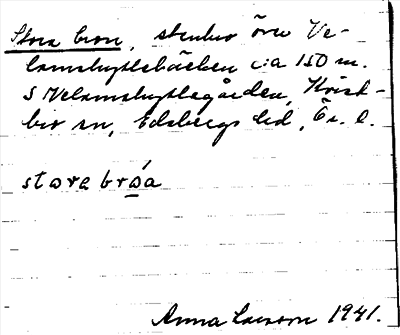 Stora bron, stenbro över Ve-
lamshyttebäcken c:a 150 m.
S Velamshyttegården, Kvist-
bro sn, Edsbergs hd, Ör. l.
stora broa
Anna Larsson 1941.